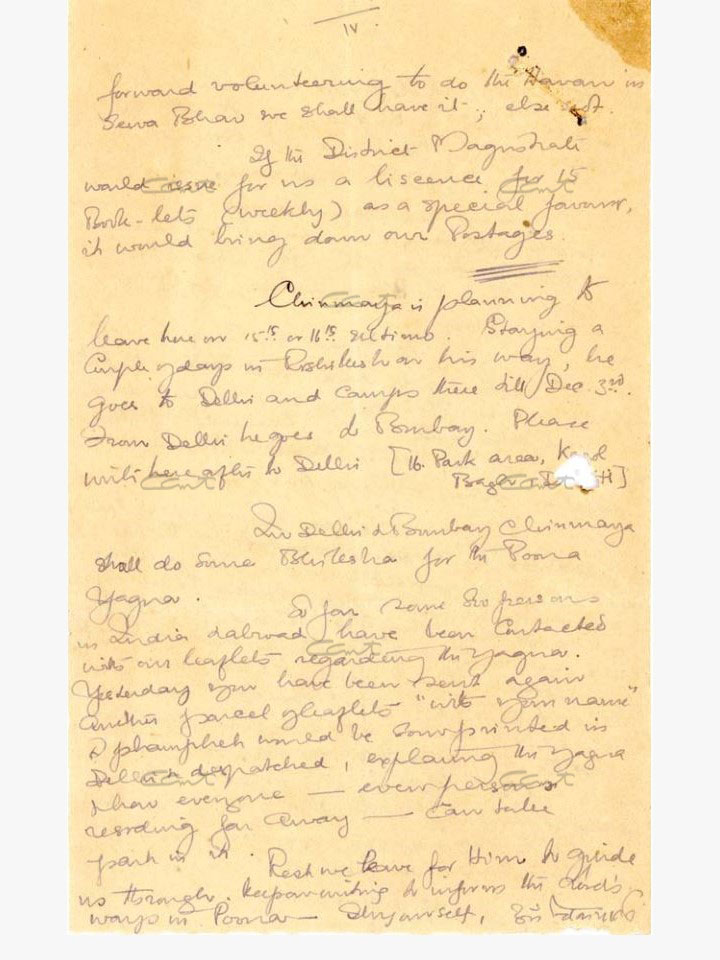 IV
forward volunteering to do the Havan in
Sewa Bhav we shall have it; else not.
If the District Magistrate
would issue for us a liscence for 15
Book-lets (weekly) as a special favour,
it would bring down our Postages.
Chinmaya is planning to
leave here on 15th or 16th
Staying a
Couple of days in Rishikesh on his way, he
goes to Delhi and camps there till Dec. 3rd.
From Delhi he goes to Bombay. Please
write hereafter to Delhi [16. Park area,
In Delhi & Bombay Chinmaya
shall do some Bhiksha for the Poona
Yagna.
So far some persons
in India & abroad have been contacted
with our leaflets regarding the Yagna.
Yesterday you have been sent again
another parcel of leaflets "with your name"
A phamphlet would be soon printed in
Delhi & despatched, explaining the Yagna
& how everyone — even persons
residing far away — can take
part in it.
Rest we leave for Him to guide
us through. Keep on writing & inform the Lord's
ways in Poona — Thy own self,